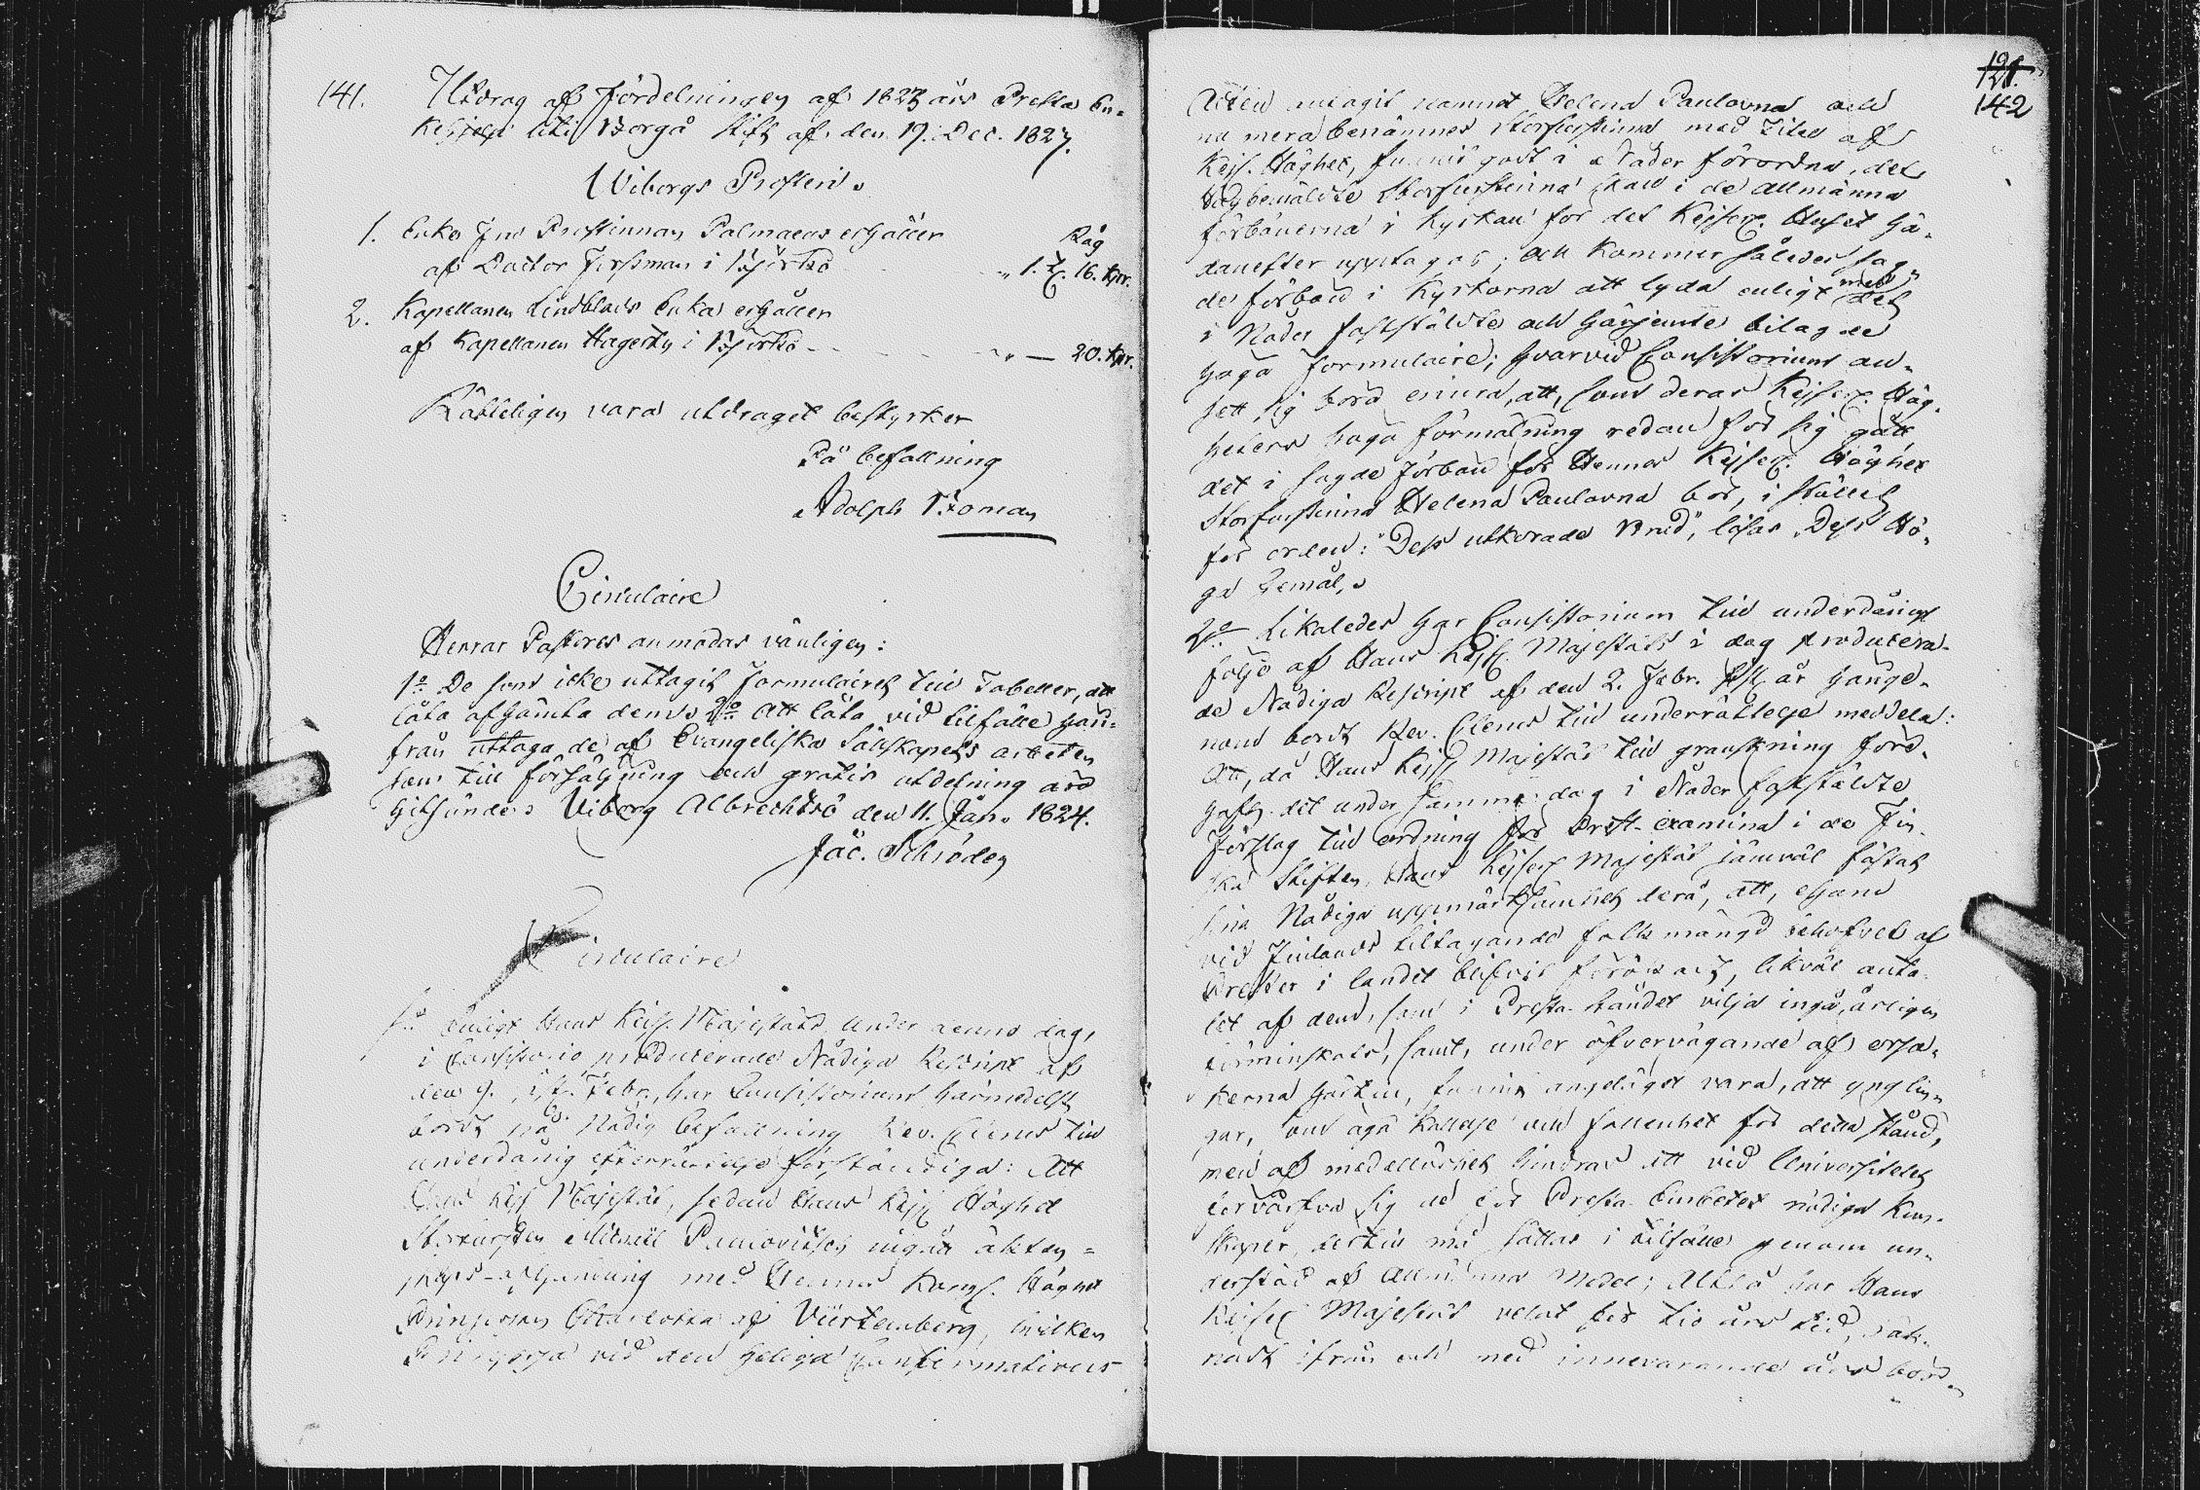 141.
Utdrag af Fördelningen af 1823 års Presta En-
kehjelp uti Borgå Stift af den 17. Dec. 1823.
Wiborgs Prosteri.
1. Enke Fru Prostinnan Palmaeus erhåller
Råg
af Doctor Forssman i Björkö " 1. T. 16. kpr.
2. Kapellanen Lindblads Enka erhåller
af Kapellanen Hagert i Björkö " — 20. kpr.
Rätteligen vara utdraget bestyrker
På befallning
Adolph Homan
Circulaire
Herrar Pastores anmodas vänligen:
1o De som icke uttagit Formulairet till Tabeller, att
låta afhämta dem. 2o Att låta vid tilfälle hän-
från uttaga de af Evangeliska Sällskapets arbeten
som till försäljning och gratis utdelning äro
hitsände. Wiborg Albrechtsö den 11. Jan. 1824.
Jac. Schröder
Circulaire
1o Enligt Hans Keis. Majestäts under denne dag,
i Consistorio producerade Nådiga Rescript af
den 9. Febr., har Consistorium härmedelst
bordt på Nådig befallning Rev. Clerus till
underdånig efterrättelse förständiga: Att
Hans Kejs Majestät, sedan Hans Kejs Höghet
Storfursten Michaël Paulovitsch ingått äkten-
skaps-afhandling med Hennes Kungl. Höghet
Prinsessan Charlotta af Würtemberg, hvilken
Prinsessa vid den heliga Confirmations-
121.
142
Acten antagit namnet Helena Paulovna och
nu mera benämnes Storfurstinna med Titel af
Kejs. Höghet, funnit godt i Nåder förordna, det
Högbemälte Storfurstinna skall i de allmänna
förbönerna i Kyrkan för det Kejserl. Huset hä-
danefter upptagas; och kommer således sag-
de förbön i Kyrkorna att lyda enligt med det
i Nåder fastställdte och härjemte bilagde
höga Formulaire; hvarvid Consistorium an-
sett sig böra erinra, att, som deras Kejserl. Hög-
heters höga förmälning redan för sig gått
det i sagde Förbön för Hennes Kejserl. Höghet
Storfurstinna Helena Paulovna bör, i stället
för orden: "Dess utkorade Brud", läsas "Dess Hö-
ga Gemål".
2o Likaledes har Consistorium till underdånigt
följe af Hans Kejs. Majestäts i dag producera-
de Nådiga Rescript af den 2. Febr. sistl. år härige-
nom bordt Rev. Clerus till underrättelse meddela:
Att, då Hans Kejs Majestät till granskning före-
haft det under samma dag i Nåder fastställdte
Förslag till ordning för Prest-examina i de Fin-
ska Stiften, Hans Kejserl Majestät jämväl fästat
sin Nådiga uppmärksamhet derå, att, ehuru
vid Finlands tilltagande folkmängd behofvet af
Prester i landet blifvit förökadt, likväl anta-
let af dem, som i Presta-ståndet vilja ingå, årligen
förminskats, samt, under öfvervägande af orsa-
kerna härtill, funnit angeläget vara, att ynglin-
gar, som äga kallelse och fallenhet för detta stånd,
men af medellöshet hindras att vid Universitetet
förvärfva sig de för Presta Embetet nödiga kun-
skaper, dertill må sättas i tilfälle genom un-
derstöd af Allmänna Medel; Altså har Hans
Kejserl Majestät velat för tio års tid, räk-
nadt ifrån och med innevarande års bör-